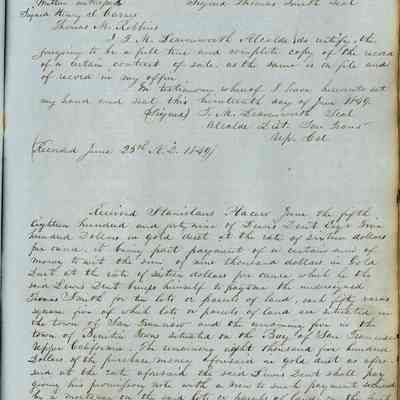 Witness
Signed Thomas Smith Seal
Signed Henry A
Thomas M. Robbins
I T. M. Leavenworth Alcalde do certify the
foregoing to be a full true and complete copy of the record
of a certain contract of sale as the same is on file and
of record in my office.
In testimony whereof I have hereunto set
my hand and seal this nineteenth day of June 1849.
(Signed) T. M. Leavenworth Seal
Alcalde Dist. San Franco
Upr Cal
(Received June 25th A.D. 1849)
Received June the fifth
Eighteen hundred and forty nine of Lewis Dent
hundred Dollars in gold dust at the rate of Sixteen dollars
per ounce, it being part payment of a certain sum of
money to wit the sum of nine thousand dollars in Gold
Dust at the rate of Sixteen dollars per ounce which he the
said Lewis Dent binds himself to pay me the undersigned
Thomas Smith for ten lots or parcels of land, each fifty varas
square five of which lots or parcels of land are situated in
the town of San Francisco and the remaining five in the
town of Benicia situated on the Bay of San Francisco
Upper California. The remaining eight thousand five hundred
Dollars of the purchase money aforesaid in gold dust as afore-
said at the rate aforesaid the said Lewis Dent shall pay
giving his promissory note with a lien to such payment secured
by a mortgage on the said lots or parcels of land